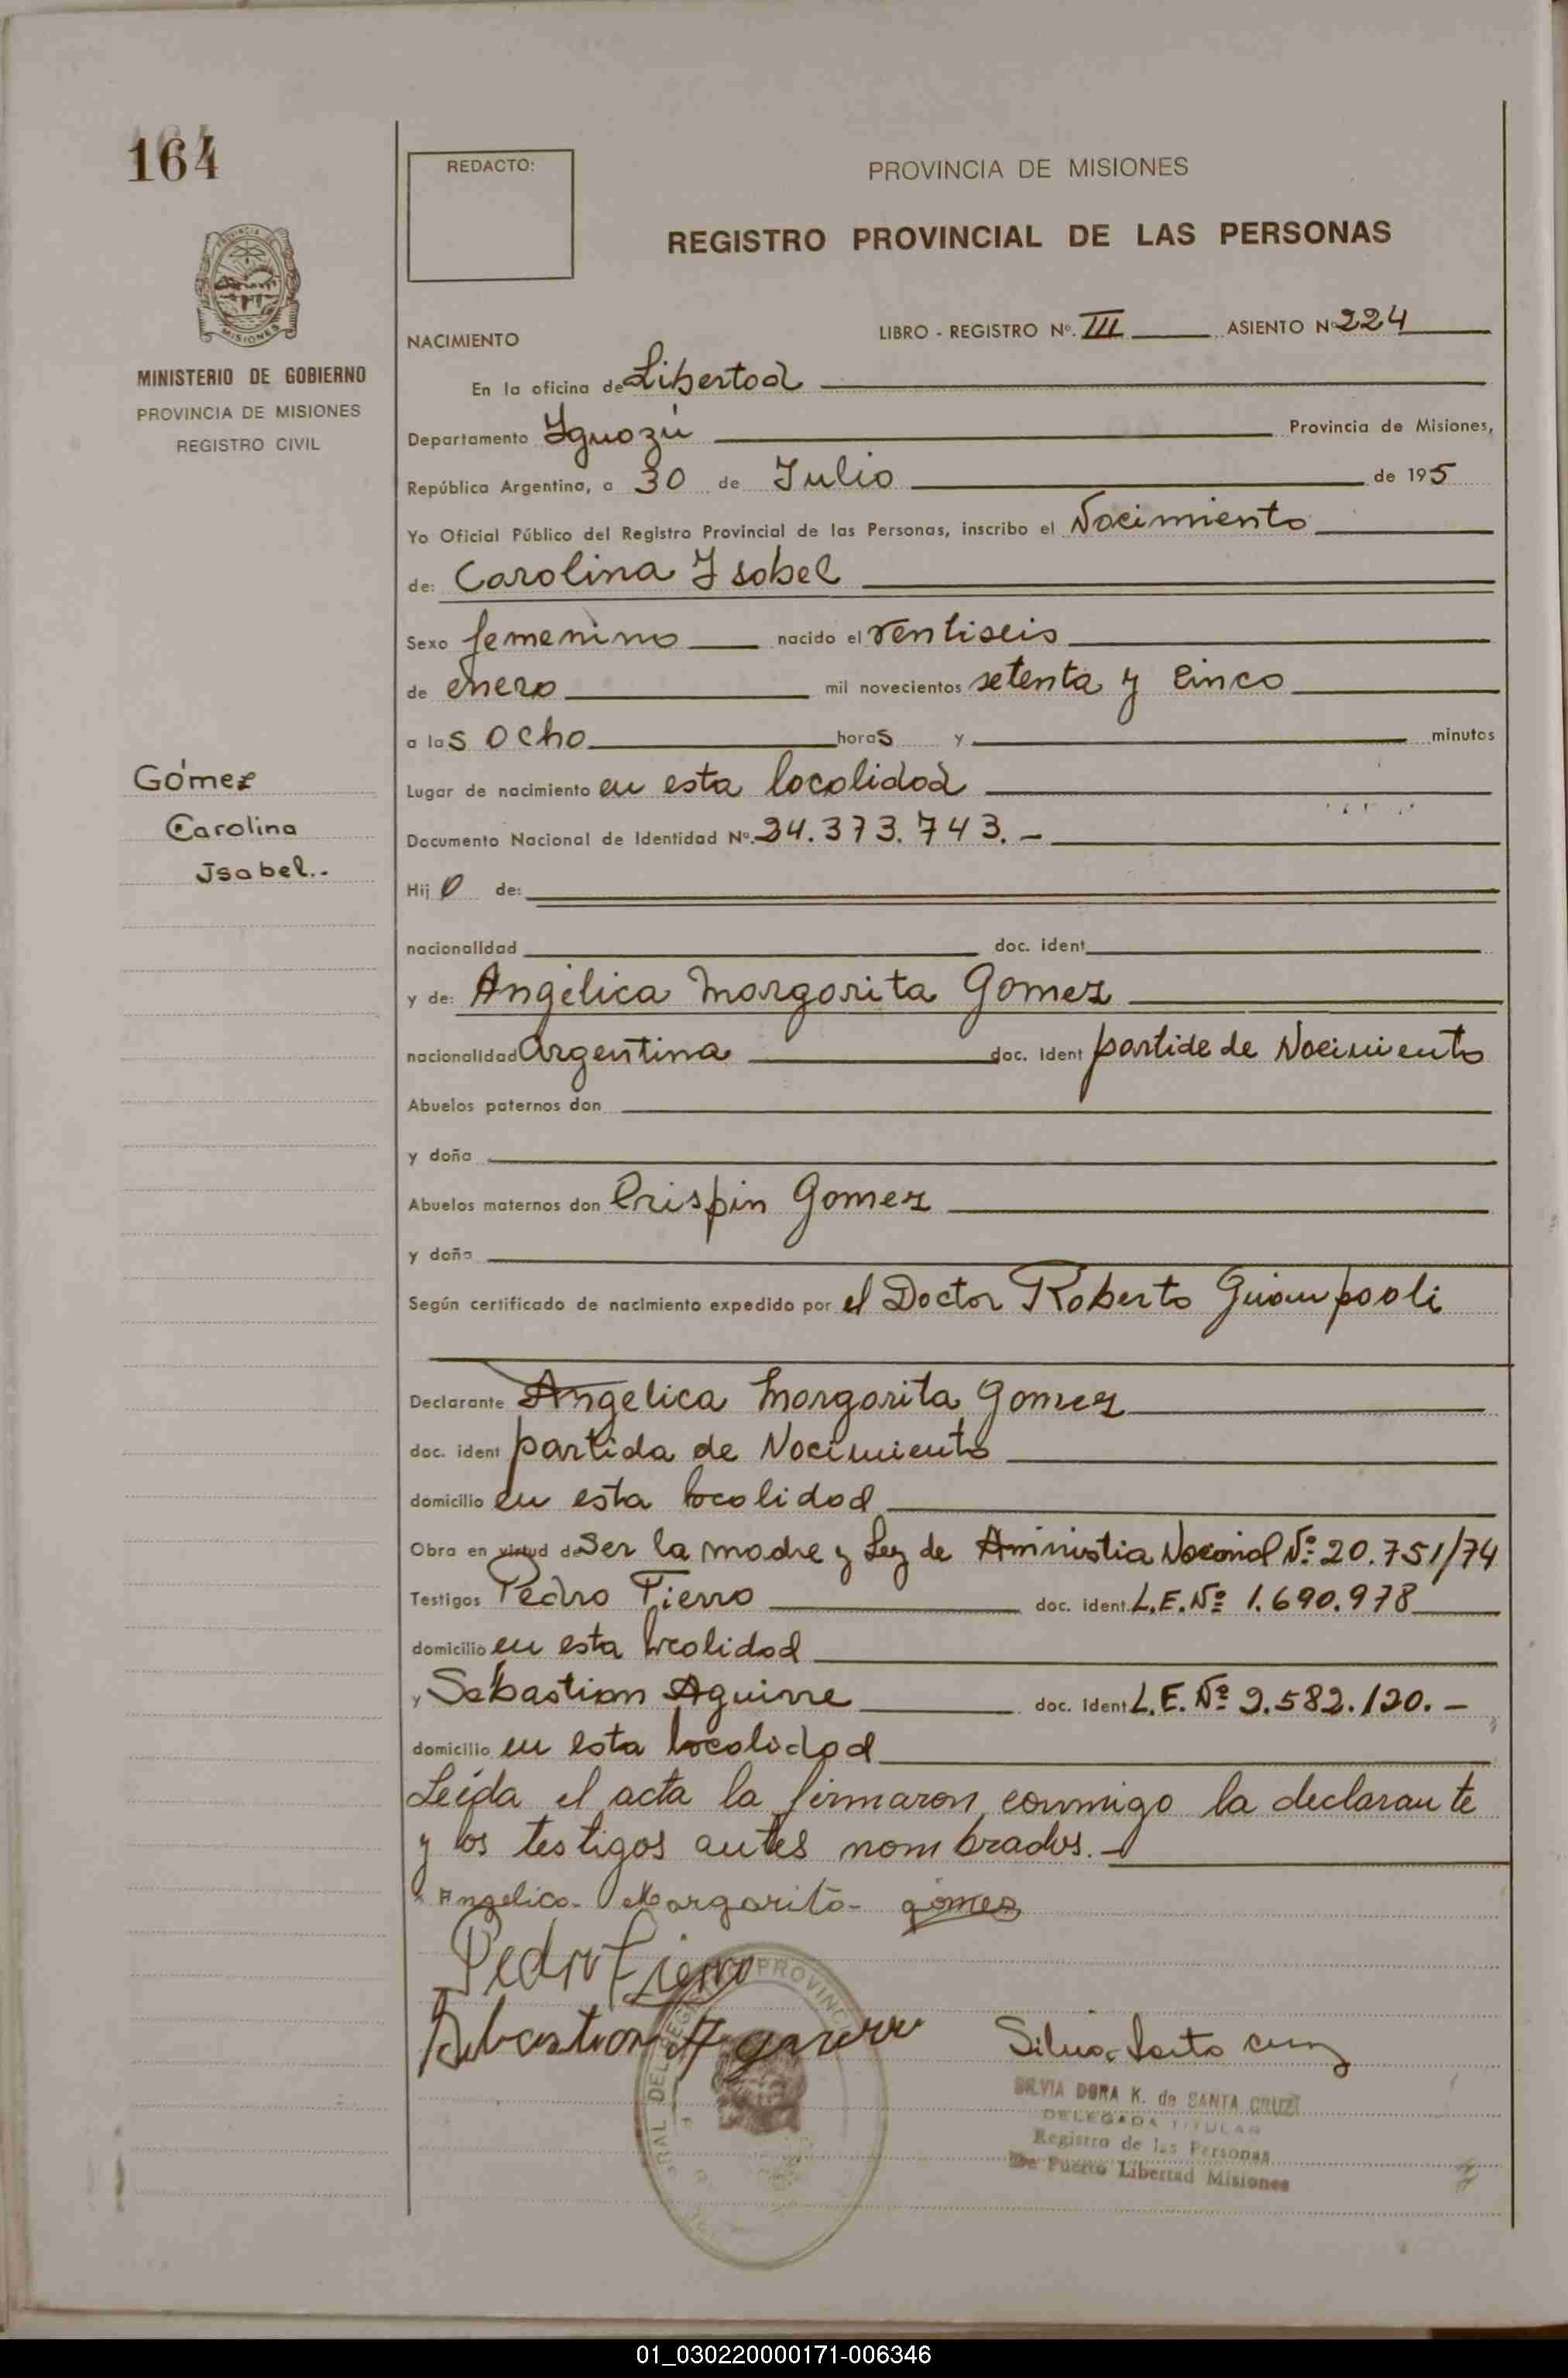 164
REDACTO:
PROVINCIA DE MISIONES
REGISTRO PROVINCIAL DE LAS PERSONAS
PROVINCIA DE
MISIONES
MINISTERIO DE GOBIERNO
PROVINCIA DE MISIONES
REGISTRO CIVIL
NACIMIENTO
LIBRO - REGISTRO Nº. III ASIENTO Nº 224
En la oficina de Libertad
Departamento Iguazú Provincia de Misiones,
República Argentina, a 30 de Julio de 195
Yo Oficial Público del Registro Provincial de las Personas, inscribo el Nacimiento
de: Carolina Isabel
Sexo femenino nacido el ventiseis
de enero mil novecientos setenta y cinco
a las ocho horas y minutos
Gómez
Carolina
Isabel.-
Lugar de nacimiento en esta localidad
Documento Nacional de Identidad Nº. 24.373.743.-
Hij o de:
nacionalidad doc. ident
y de: Angélica Margarita Gomez
nacionalidad argentina doc. ident partide de Nacimiento
Abuelos paternos don
y doña
Abuelos maternos don Crispin Gomez
y doña
Según certificado de nacimiento expedido por el Doctor Roberto Guiampaoli
Declarante Angelica Margarita Gomez
doc. ident partida de Nacimiento
domicilio en esta localidad
Obra en virtud de Ser la madre y Ley de Aministia Nacional Nº 20.751/74
Testigos Pedro Fierro doc. ident. L.E. Nº 1.690.978
domicilio en esta localidad
y Sebastian Aguirre doc. ident L.E. Nº 2.582.120.-
domicilio en esta localidad
Leída el acta la firmaron conmigo la declarante
y los testigos antes nombrados.-
Angelica Margarita gomez
Pedro Fierro
Sebastian Aguirre
Silvia Santa Cruz
SILVIA DORA K. de SANTA CRUZ
DELEGADA TITULAR
Registro de las Personas
De Puerto Libertad Misiones
01_030220000171-006346